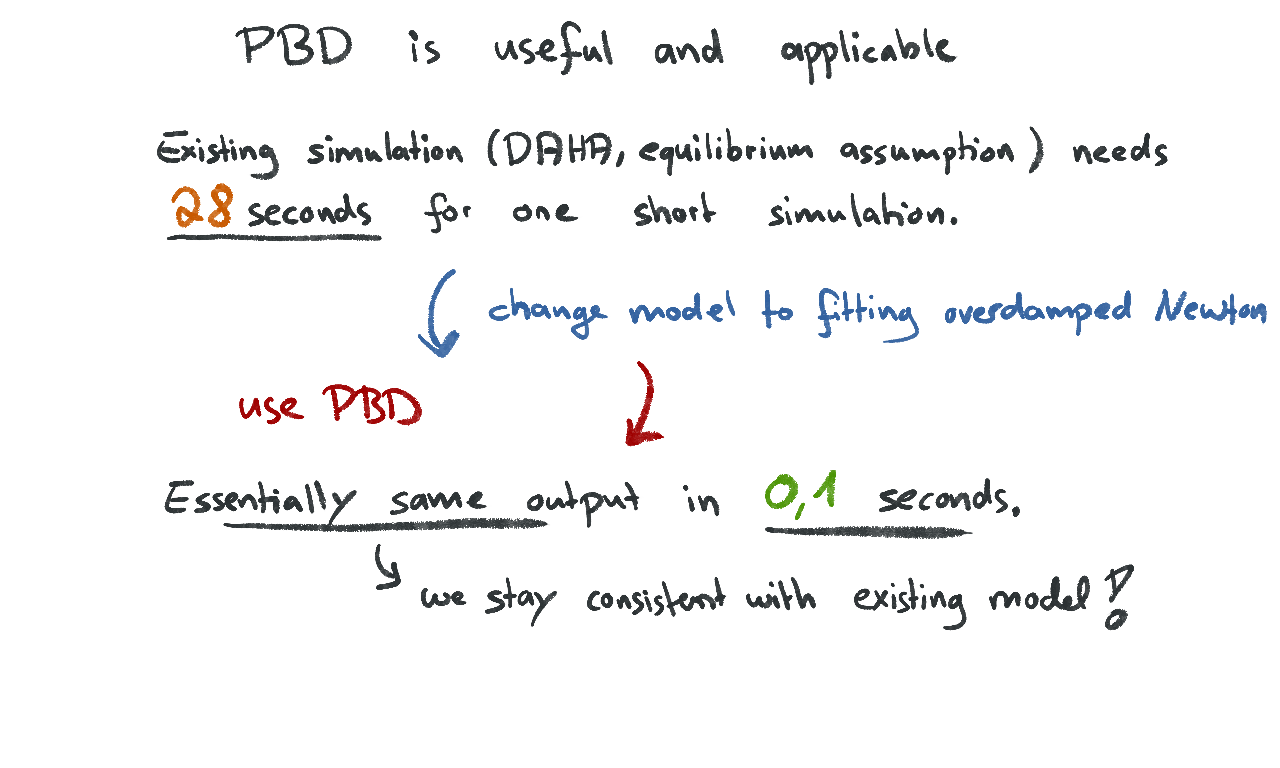 PBD is useful and applicable
Existing simulation (DAHA, equilibrium assumption) needs
28 seconds for one short simulation.
change model to fitting overdamped Newton
use PBD
Essentially same output in 0,1 seconds.
we stay consistent with existing model!